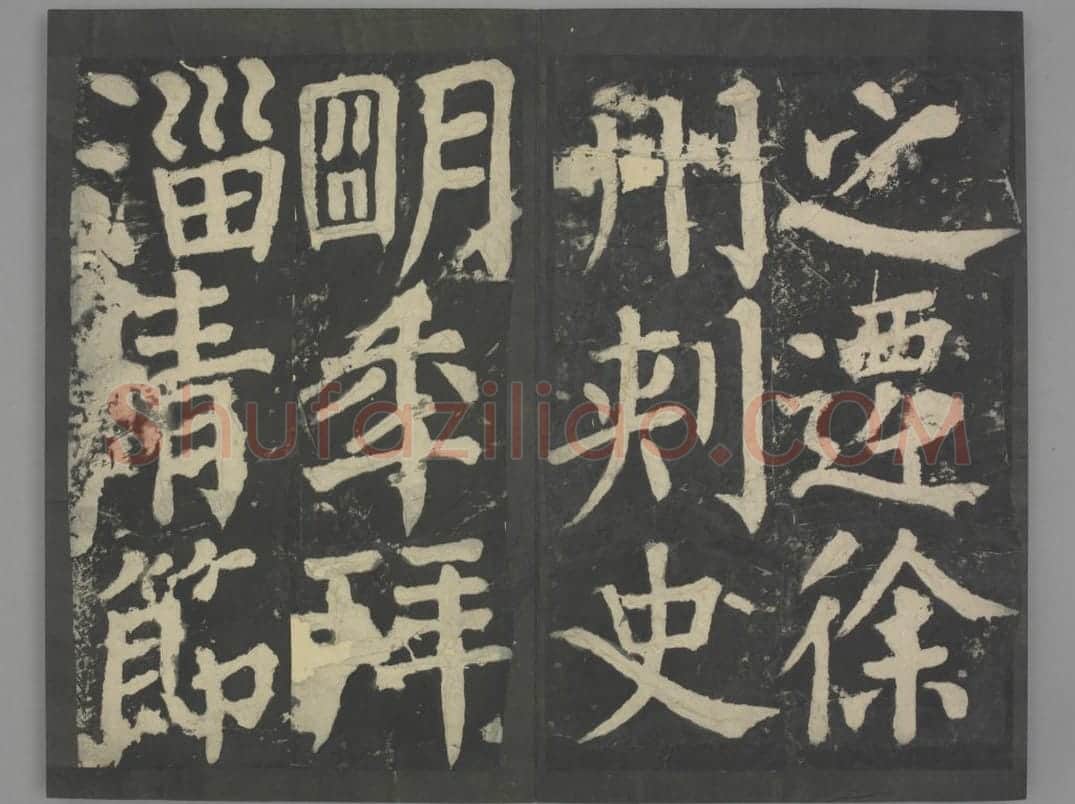 之遷徐
州刺史
明年拜
淄青節
Shufaziliao.COM